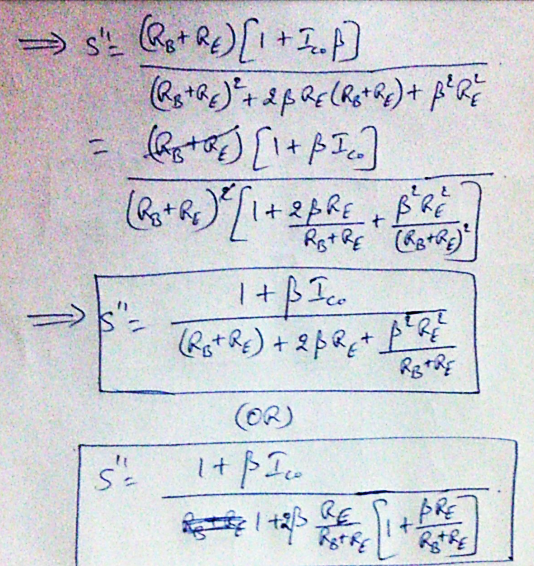 ⇒ S'' = (R_B + R_E) [1 + I_co β] / (R_B+R_E)² + 2β R_E (R_B+R_E) + β² R_E²
= (R_B+R_E) [1 + β I_co] / (R_B+R_E)² [1 + 2βR_E / R_B+R_E + β² R_E² / (R_B+R_E)²]
⇒ S'' = 1 + β I_co / (R_B+R_E) + 2βR_E + β² R_E² / R_B+R_E
(OR)
S'' = 1 + β I_co / 1 + 2β R_E / R_B+R_E [1 + βR_E / R_B+R_E]